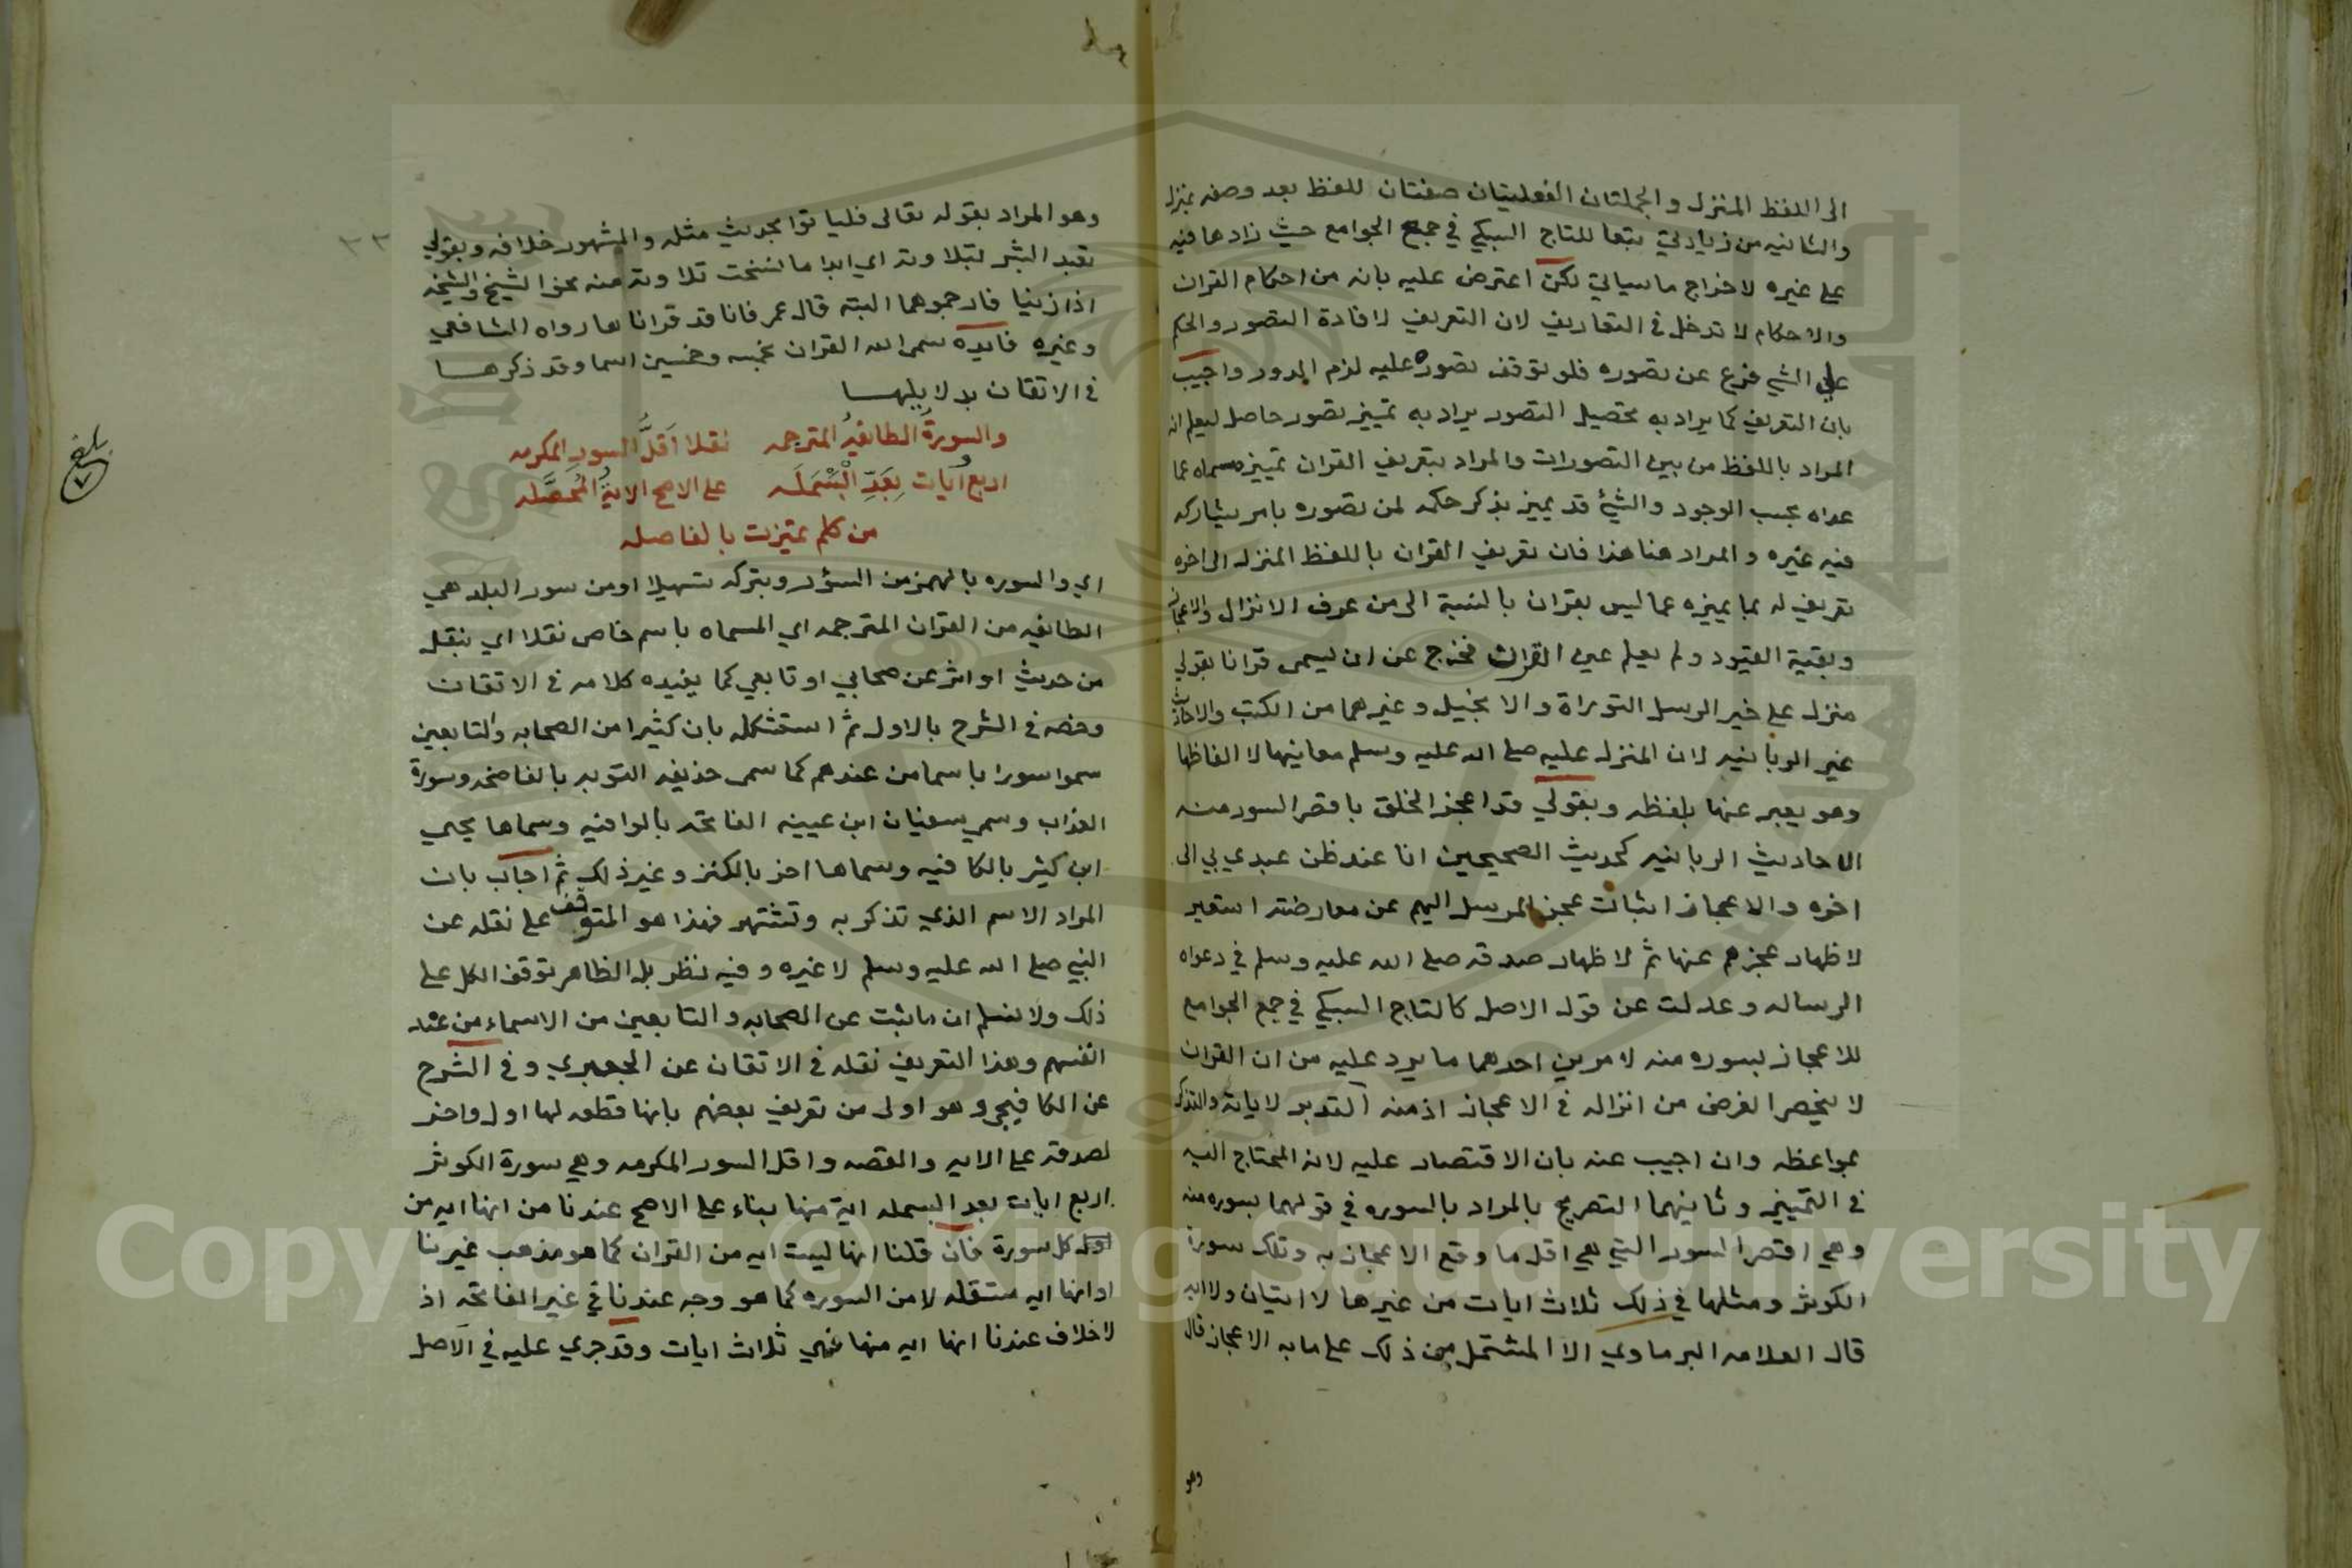 الى اللفظ المنزل والجملتان الفعليتان صفتان للفظ بعد وصفه بمنزل
والثانيه من زيادتي تبعا للتاج السبكي في جمع الجوامع حيث زادها فيه
على غيره لاخراج ماسياتي لكن اعترض عليه بانه من احكام القران
والاحكام لا تدخل في التعاريف لان التعريف لافادة التصور والحكم
على الشي فرع عن تصوره فلو توقف تصوره عليه لزم الدور واجيب
بان التعريف كما يراد به تحصيل التصور يراد به تمييز تصور حاصل ليعلم انه
المراد باللفظ من بين التصورات والمراد بتعريف القران تمييزه مسماه عما
عداه بحسب الوجود والشئ قد يميز بذكر حكمه لمن تصوره بامر يشاركه
فيه غيره والمراد هنا هذا فان تعريف القران باللفظ المنزل الى اخره
تعريف له بما يميزه عما ليس بقران بالنسبة الى من عرف الانزال والاعجاز
وبقية القيود ولم يعلم عين القران فخرج عن ان يسمى قرانا بقولي
منزل على خير الرسل التوراة والانجيل وغيرهما من الكتب والاحاديث
غير الربانيه لان المنزل عليه صلى الله عليه وسلم معانيها لا الفاظها
وهو يعبر عنها بلفظه وبقولي قد اعجز الخلق باقصر السور منه
الاحاديث الربانيه كحديث الصحيحين انا عند ظن عبدي بي الى
اخره والاعجاز اثبات عجز المرسل اليهم عن معارضته استعير
لاظهار عجزهم عنها ثم لاظهار صدقه صلى الله عليه وسلم في دعواه
الرساله وعدلت عن قول الاصل كالتاج السبكي في جمع الجوامع
للاعجاز بسوره منه لامرين احدهما مايرد عليه من ان القران
لا ينحصر الغرض من انزاله في الاعجاز اذ منه التدبر لاياته والتذكر
بمواعظه وان اجيب عنه بان الاقتصار عليه لانه المحتاج اليه
في التمييز وثانيهما التصريح بالمراد بالسوره في قولهما بسوره منه
وهي اقصر السور التي هي اقل ما وقع الاعجاز به وتلك سورة
الكوثر ومثلها في ذلك ثلاث ايات من غيرها لا ايتان ولا ايه
قال العلامه البرماوي الا المشتمل من ذلك على ما به الاعجاز قال
وهو
وهو المراد بقوله تعالى فلياتوا بحديث مثله والمشهور خلافه وبقولي
تعبد البشر بتلاوته اي ابدا ما نسخت تلاوته منه نحو الشيخ والشيخه
اذا زنيا فارجموهما البته قال عمر فانا قد قراناها رواه الشافعي
وغيره فايده سمى الله القران بخمسه وخمسين اسما وقد ذكرها
في الاتقان بدلايلها
٣٣
والسورة الطايفه المترجمه نقلا اقل السور المكرمه
اربع ايات بعد البسمله على الاصح الاية المحصله
من كلم تميزت بالفاصله
بلغ
اي والسوره بالهمز من السؤر وبتركه تسهيلا او من سور البلد هي
الطايفه من القران المترجمه اي المسماه باسم خاص نقلا اي بنقل
من حديث او اثر عن صحابي او تابعي كما يفيده كلامه في الاتقان
وخصه في الشرح بالاول ثم استشكله بان كثيرا من الصحابه والتابعين
سموا سورا باسما من عندهم كما سمى حذيفه التوبه بالفاضحه وسورة
العذاب وسمي سفيان ابن عيينه الفاتحه بالوافيه وسماها يحيى
ابن كثير بالكافيه وسماها اخر بالكنز وغير ذلك ثم اجاب بان
المراد الاسم الذي تذكر به وتشتهر فهذا هو المتوقف على نقله عن
النبي صلى الله عليه وسلم لا غيره وفيه نظر بل الظاهر توقف الكل على
ذلك ولا نسلم ان ماثبت عن الصحابه والتابعين من الاسماء من عند
انفسهم وهذا التعريف نقله في الاتقان عن الجعبري وفي الشرح
عن الكافيجي وهو اولى من تعريف بعضهم بانها قطعه لها اول واخر
لصدقه على الايه والقصه واقل السور المكرمه وهي سورة الكوثر
اربع ايات بعد البسمله اية منها بناء على الاصح عندنا من انها ايه من
اول كل سورة فان قلنا انها ليست ايه من القران كما هو مذهب غيرنا
او انها ايه مستقله لا من السوره كما هو وجه عندنا في غير الفاتحه اذ
لا خلاف عندنا انها ايه منها فهي ثلاث ايات وقد جري عليه في الاصل
Copyright © King Saud University
1957